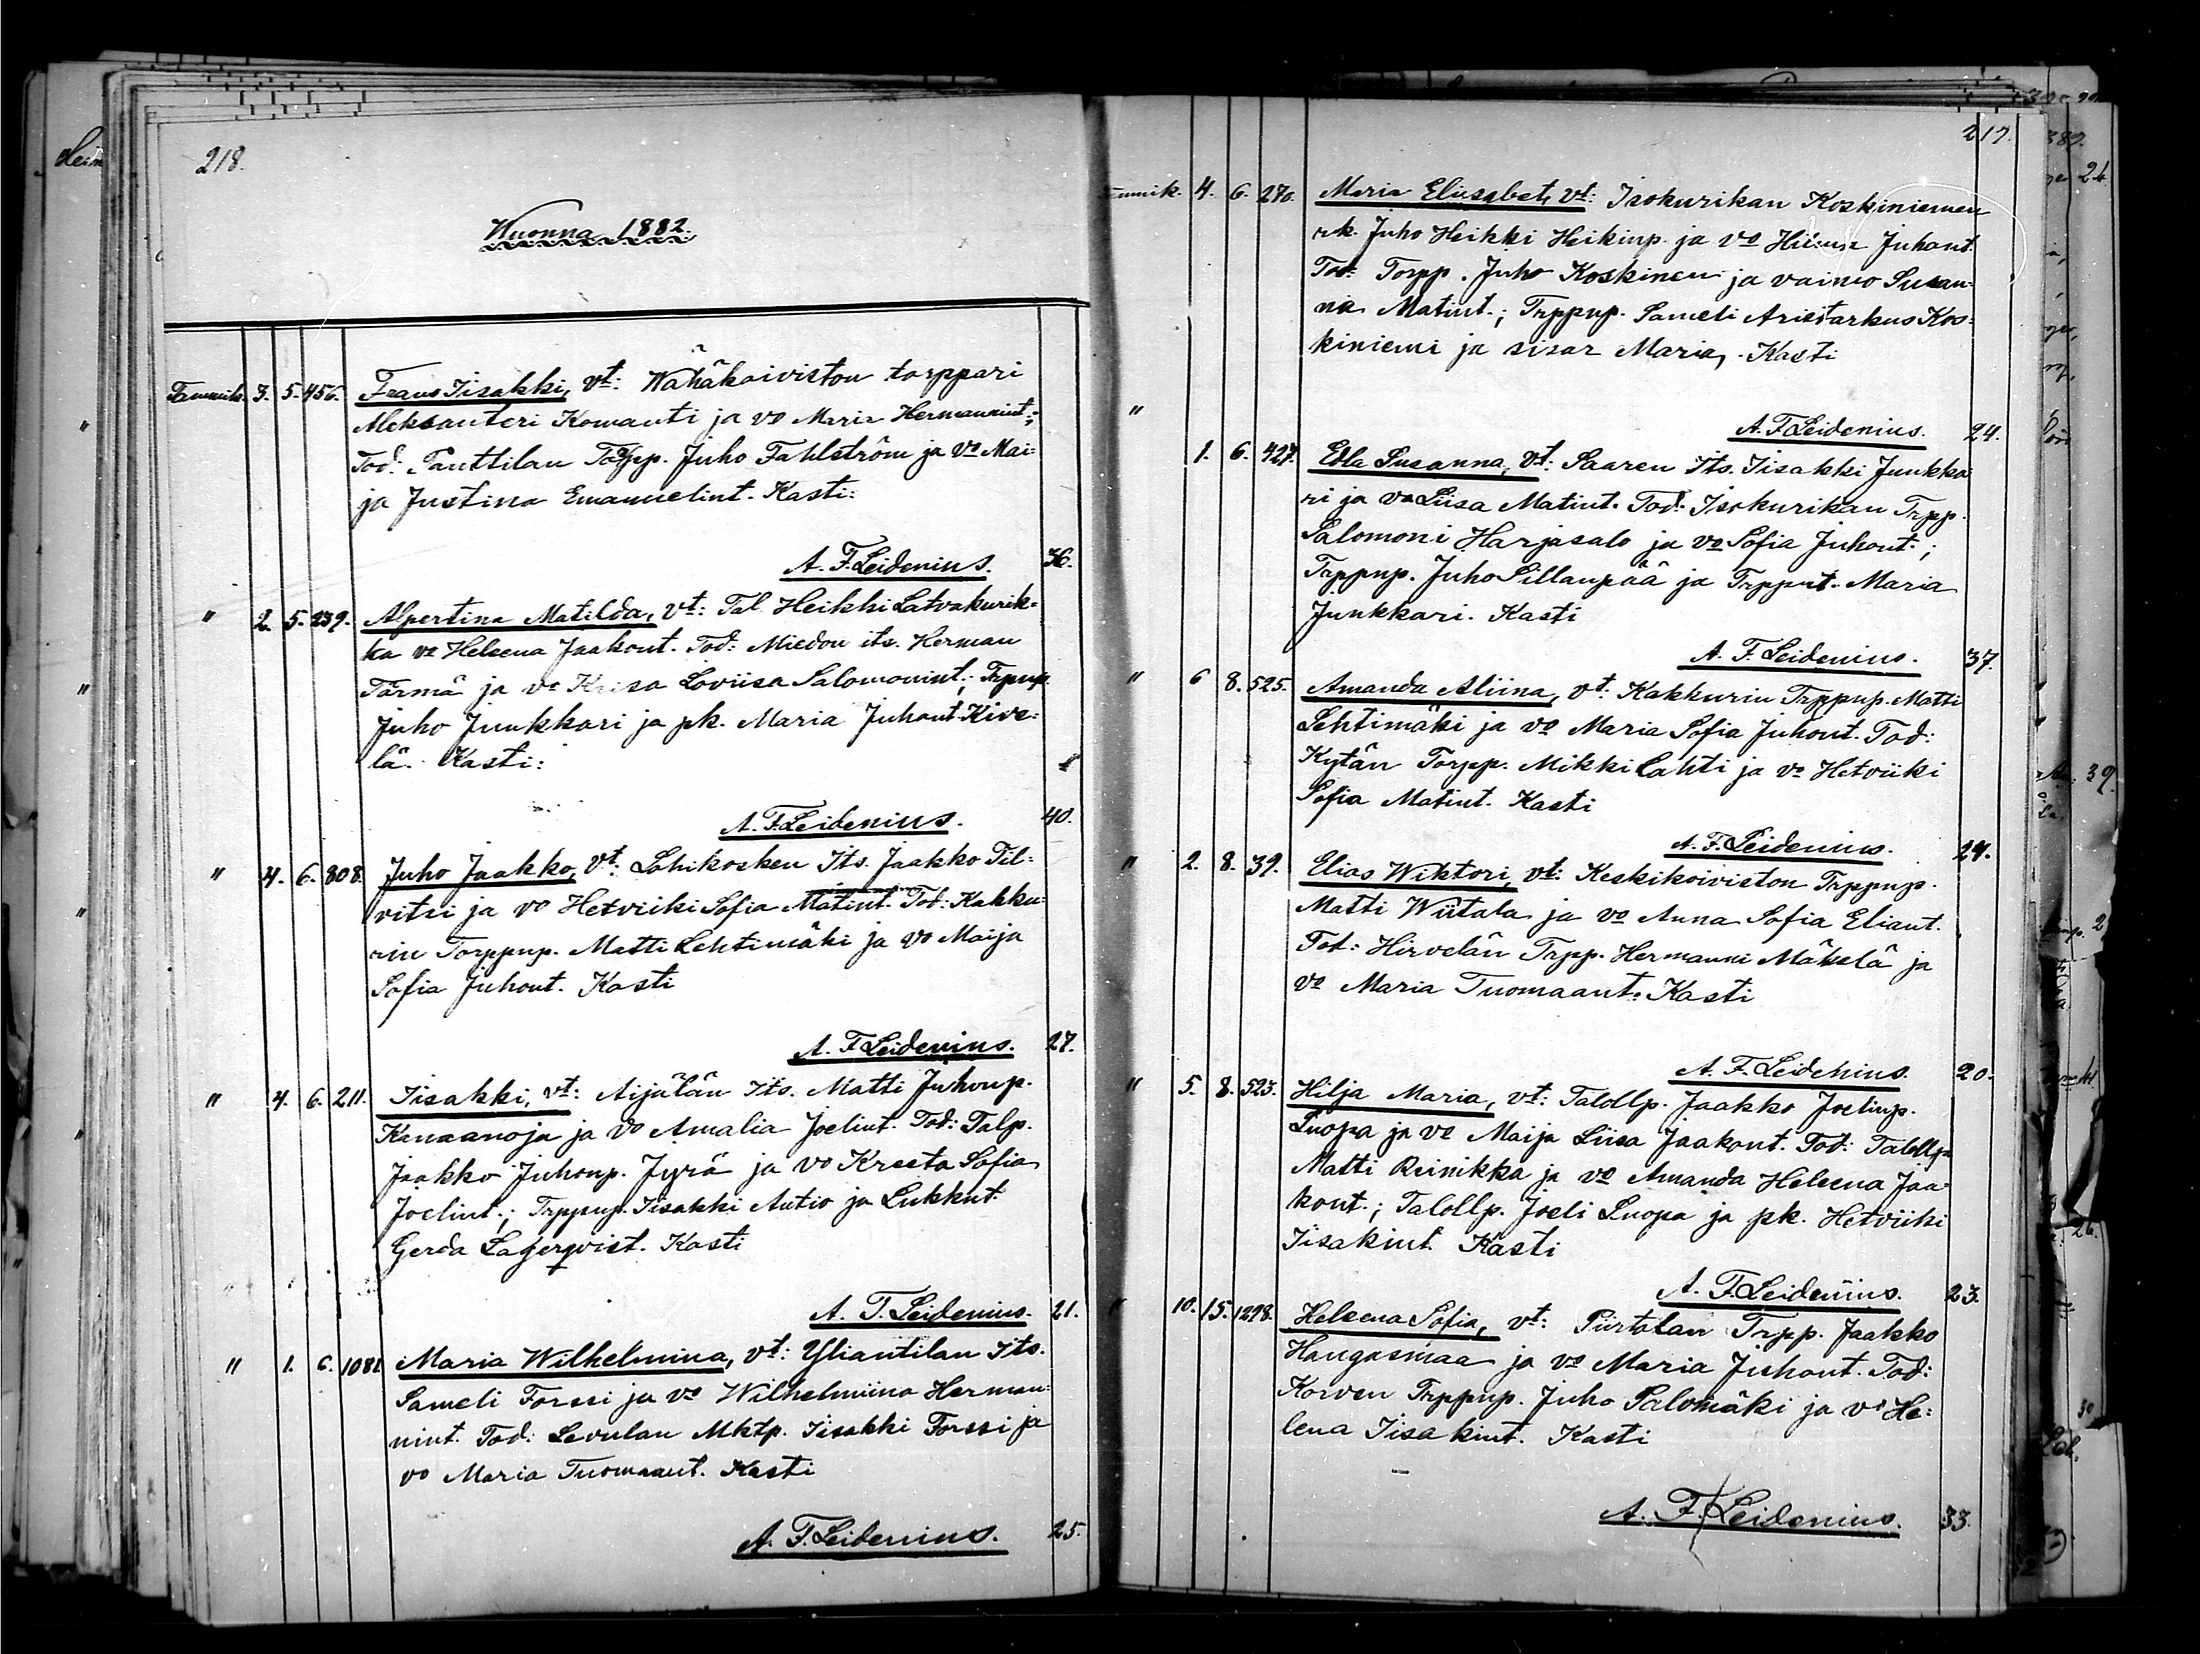 218.
Wuonna 1882.
Tammik. 3. 5. 456. Frans Iisakki, vt: Wähäkoiviston torppari
Aleksanteri Komanti ja vo Maria Hermannint.;
Tod: Panttilan Torpp. Juho Fahlström ja vo Mai=
ja Justina Emanuelint. Kasti:
A. F. Leidenius. 36.
" 2. 5. 239. Alpertina Matilda, vt: Tal. Heikki Latvakurik=
ka vo Heleena Jaakont. Tod: Miedon its. Herman
Tärmä ja vo Kaisa Loviisa Salomonint.; Trpup.
Juho Junkkari ja pk. Maria Juhont. Kive=
lä. Kasti:
A. F. Leidenius. 40.
" 4. 6. 808. Juho Jaakko, vt: Lohikosken Its. Jaakko Til=
vitsi ja vo Hetviiki Sofia Matint. Tod: Kakku=
rin Torppup. Matti Lehtimäki ja vo Maija
Sofia Juhont. Kasti
A. F. Leidenius. 27.
" 4. 6. 211. Iisakki, vt: Aijälän Its. Matti Juhonp.
Kanaanoja ja vo Amalia Joelint. Tod: Talp.
Jaakko Juhonp. Jyrä ja vo Kreeta Sofia
Joelint.; Trppup. Iisakki Autio ja Lukkut.
Gerda Lagerqvist. Kasti
A. F. Leidenius. 21.
" 1. 6. 1081. Maria Wilhelmina, vt: Yliantilan Its.
Sameli Forssi ja vo Wilhelmiina Herman=
nint. Tod: Levulan Mktp. Iisakki Forssi ja
vo Maria Tuomaant. Kasti
A. F. Leidenius. 25.
219.
4. 6. 270. Maria Eliisabet, vt: Isokurikan Koskiniemen
rk. Juho Heikki Heikinp. ja vo Juhont.
Tod: Torpp. Juho Koskinen ja vaimo Susan=
na Matint.; Trppup. Sameli Aristarkus Kos=
kiniemi ja sisar Maria, Kasti
A. F. Leidenius. 24.
" 1. 6. 427. Edla Susanna, vt: Saaren Its. Iisakki Junkka
ri ja vo Liisa Matint. Tod: Isokurikan Trpp.
Salomoni Harjasalo ja vo Sofia Juhont.;
Trppup. Juho Sillanpää ja Trpput. Maria
Junkkari. Kasti
A. F. Leidenius. 37.
" 6 8. 525. Amanda Aliina, vt: Kakkurin Trppup. Matti
Lehtimäki ja vo Maria Sofia Juhont. Tod:
Kytän Torpp. Mikki Lahti ja vo Hetviiki
Sofia Matint. Kasti
A. F. Leidenius. 24.
" 2. 8. 39. Elias Wiktori, vt: Keskikoiviston Trppup.
Matti Wiitala ja vo Anna Sofia Eliant.
Tod: Hirvelän Trpp. Hermanni Mäkelä ja
vo Maria Tuomaant. Kasti
A. F. Leidenius. 20.
" 5. 8. 523. Hilja Maria, vt: Talollp. Jaakko Joelinp.
Luopa ja vo Maija Liisa Jaakont. Tod: Talollp.
Matti Reinikka ja vo Amanda Heleena Jaa=
kont.; Talollp. Joeli Luopa ja pk. Hetviiki
Iisakint. Kasti
A. F. Leidenius. 23.
" 10. 15. 1298. Heleena Sofia, vt: Piirtolan Trpp. Jaakko
Hangasmaa ja vo Maria Juhont. Tod:
Korven Trppup. Juho Salomäki ja vo He=
lena Iisakint. Kasti
A. F. Leidenius. 33.